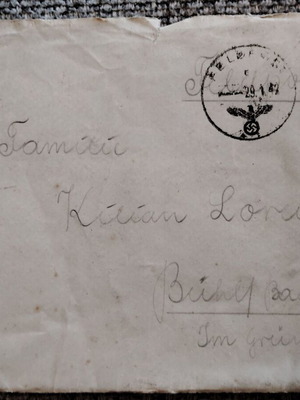 FELDPOST
29.1.42
Familie
Kilian Lore
Bühl Ba
Im Grün